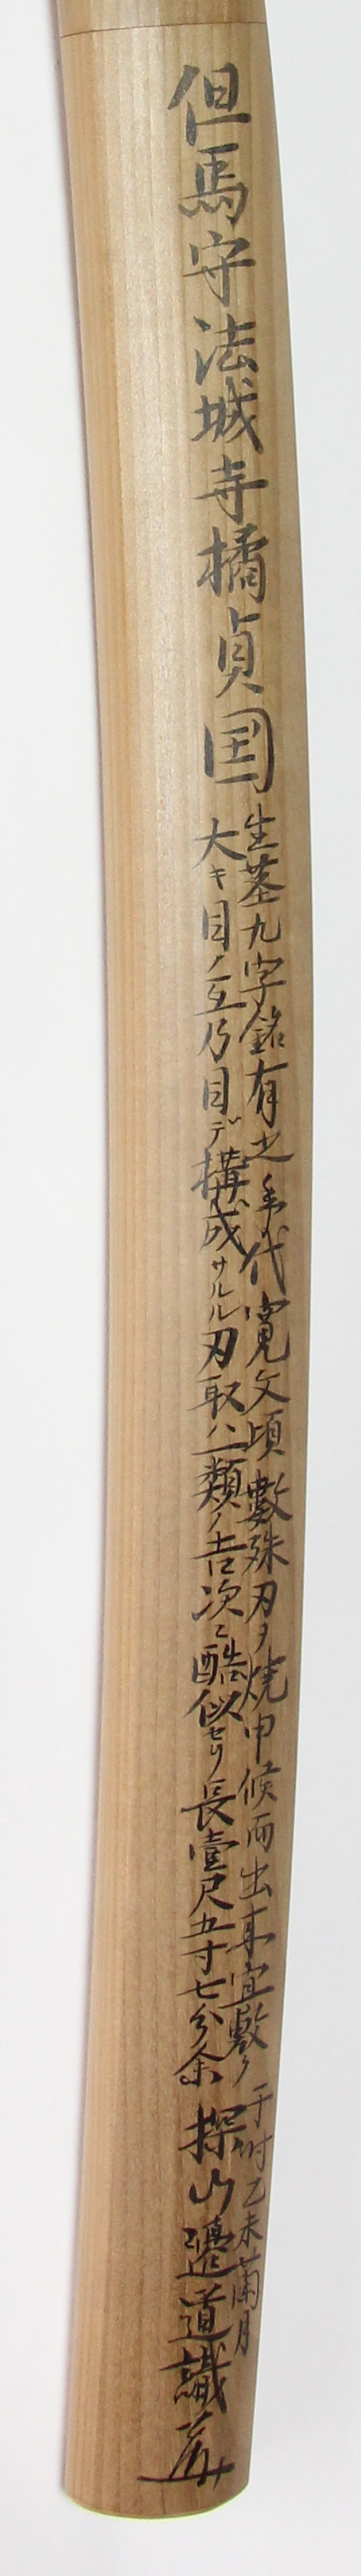 但馬守法城寺橘貞国
生茎九字銘有之年代寛文頃數珠刃ヲ焼申候而出来宜敷ク
大キ目ノ互乃目デ構成サルル刃取ハ一類ノ吉次ニ酷似セリ長壹尺五寸七分余
于时乙未蘭月
探山邉道識